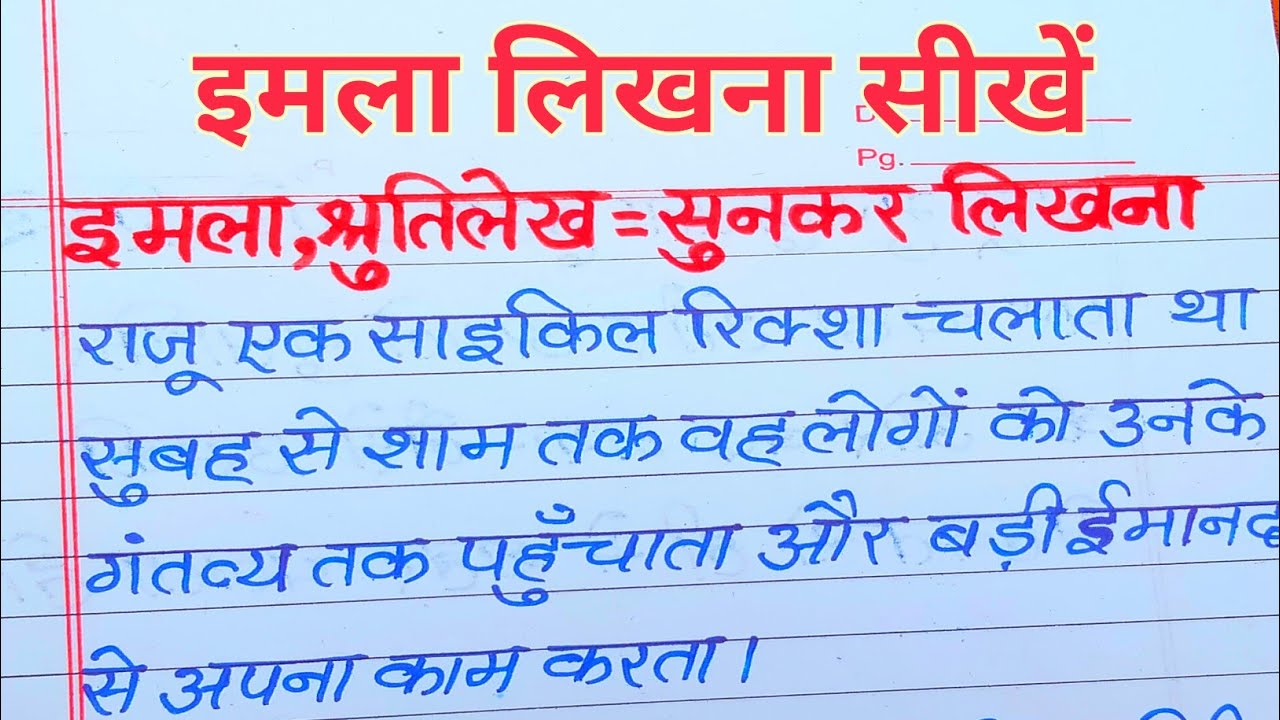 इमला लिखना सीखें
Pg.
इमला, श्रुतिलेख = सुनकर लिखना
राजू एक साइकिल रिक्शा चलाता था
सुबह से शाम तक वह लोगों को उनके
गंतव्य तक पहुँचाता और बड़ी ईमानद
से अपना काम करता।